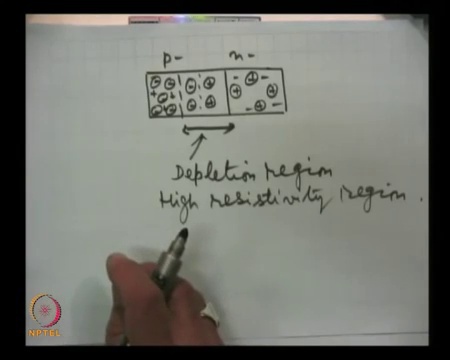 p- n-
Depletion region
High resistivity region.
NPTEL